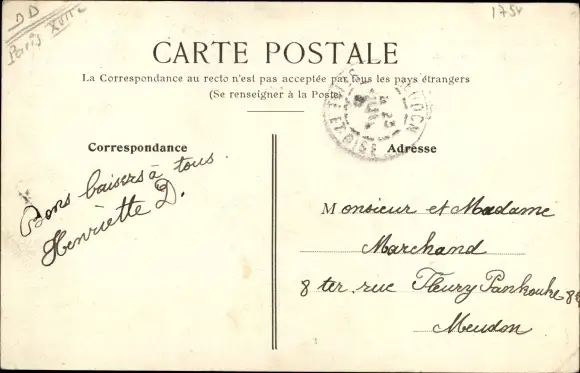 DD
Paris XVIIe
1754
CARTE POSTALE
La Correspondance au recto n'est pas acceptée par tous les pays étrangers
(Se renseigner à la Poste)
Correspondance
Bons baisers à tous.
Henriette D.
Adresse
Monsieur et Madame
Marchand
8 ter. rue Fleury Pankouke 8
Meudon